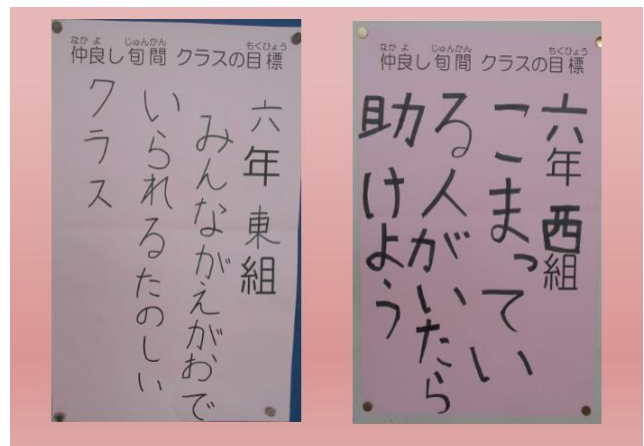 仲良し旬間 クラスの目標
なかよ じゅんかん もくひょう
六年 東組
みんながえがおで
いられるたのしい
クラス
仲良し旬間 クラスの目標
なかよ じゅんかん もくひょう
六年 西組
こまってい
る人がいたら
助けよう